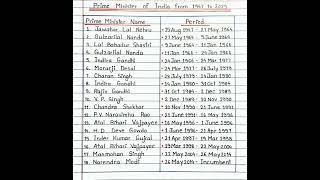 Prime Minister of India from 1947 to 2025
Prime Minister Name Period
1. Jawahar Lal Nehru - 15 Aug 1947 - 27 May 1964
2. Gulzarilal Nanda - 27 May 1964 - 9 June 1964
3. Lal Bahadur Shastri - 9 June 1964 - 11 Jan 1966
4. Gulzarilal Nanda - 11 Jan 1966 - 24 Jan 1966
5. Indira Gandhi - 24 Jan 1966 - 24 Mar 1977
6. Morarji Desai - 24 Mar 1977 - 28 July 1979
7. Charan Singh - 28 July 1979 - 14 Jan 1980
8. Indira Gandhi - 14 Jan 1980 - 31 Oct 1984
9. Rajiv Gandhi - 31 Oct 1984 - 2 Dec 1989
10. V. P. Singh - 2 Dec 1989 - 10 Nov 1990
11. Chandra Shekhar - 10 Nov 1990 - 21 June 1991
12. P.V. Narasimha Rao - 21 June 1991 - 16 May 1996
13. Atal Bihari Vajpayee - 16 May 1996 - 1 June 1996
14. H.D. Deve Gowda - 1 June 1996 - 21 Apr 1997
15. Inder Kumar Gujral - 21 Apr 1997 - 19 Mar 1998
16. Atal Bihari Vajpayee - 19 Mar 1998 - 22 May 2004
17. Manmohan Singh - 22 May 2004 - 26 May 2014
18. Narendra Modi - 26 May 2014 - Incumbent